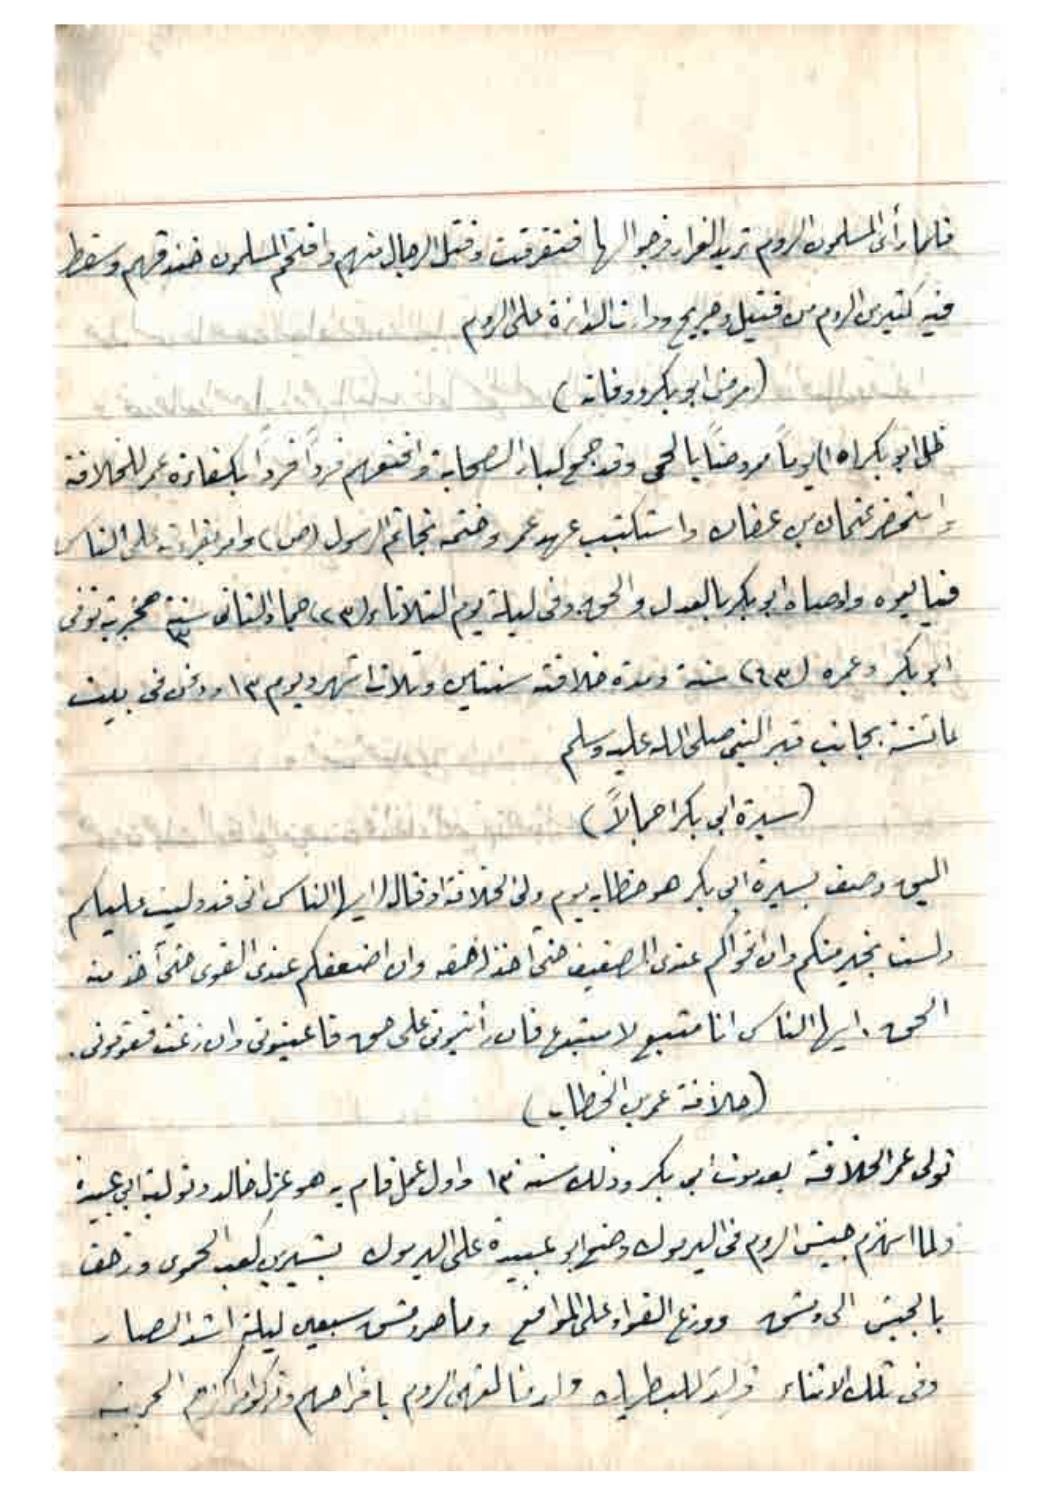 فلما رأى المسلمون الروم تريد الفرار فرجوا لها فتفرقت وقتل الرجال منهم واقتحم المسلمون خندقهم وسقط
فيه كثير من الروم من قتيل وجريح ودارت الدائرة على الروم
(مرض ابو بكر ووفاته)
ظل ابو بكر (١٥) يوماً مروضاً بالحمى وقد جمع كبار الصحابة واقنعهم فرداً فرداً بكفاءة عمر للخلافة
واستحضر عثمان بن عفان واستكتب عهد عمر وختمه بخاتم الرسول (ص) وامر بقراءته على الناس
فبايعوه واوصاه ابو بكر بالعدل والحق وفي ليلة يوم الثلاثاء (٢٣) جماد الثاني سنة ١٣ هجرية توفى
ابو بكر وعمره (٦٣) سنة ومدة خلافته سنتين وثلاث اشهر ويوم ١٣ ودفن في بيت
عائشة بجانب قبر النبي صلى الله عليه وسلم
(سيرة ابي بكر اجمالاً)
اليق وصف بسيرة ابي بكر هو خطابه يوم ولي الخلافة اذ قال ايها الناس اني قد وليت عليكم
ولست بخير منكم وان اقواكم عندي الضعيف حتى آخذ له حقه وان اضعفكم عندي القوى حتى آخذ منه
الحق . ايها الناس انا متبع لا مبتدع فان رأيتموني على حق فاعينوني وان زغت فقوموني .
(خلافة عمر بن الخطاب)
تولى عمر الخلافة بعد موت ابي بكر وذلك سنة ١٣ واول عمل قام به هو عزل خالد وتولية ابي عبيدة
ولما انهزم جيش الروم في اليرموك وضع ابو عبيدة على اليرموك بشير بن كعب الحموى وزحف
بالجيش الى دمشق ووزع القواد على المواقع وحاصر دمشق سبعين ليلة اشد الحصار
وفي تلك الاثناء وُلِدَ للبطريك ولد فالتهى الروم بافراحهم وتركوا مراكزهم الحربية